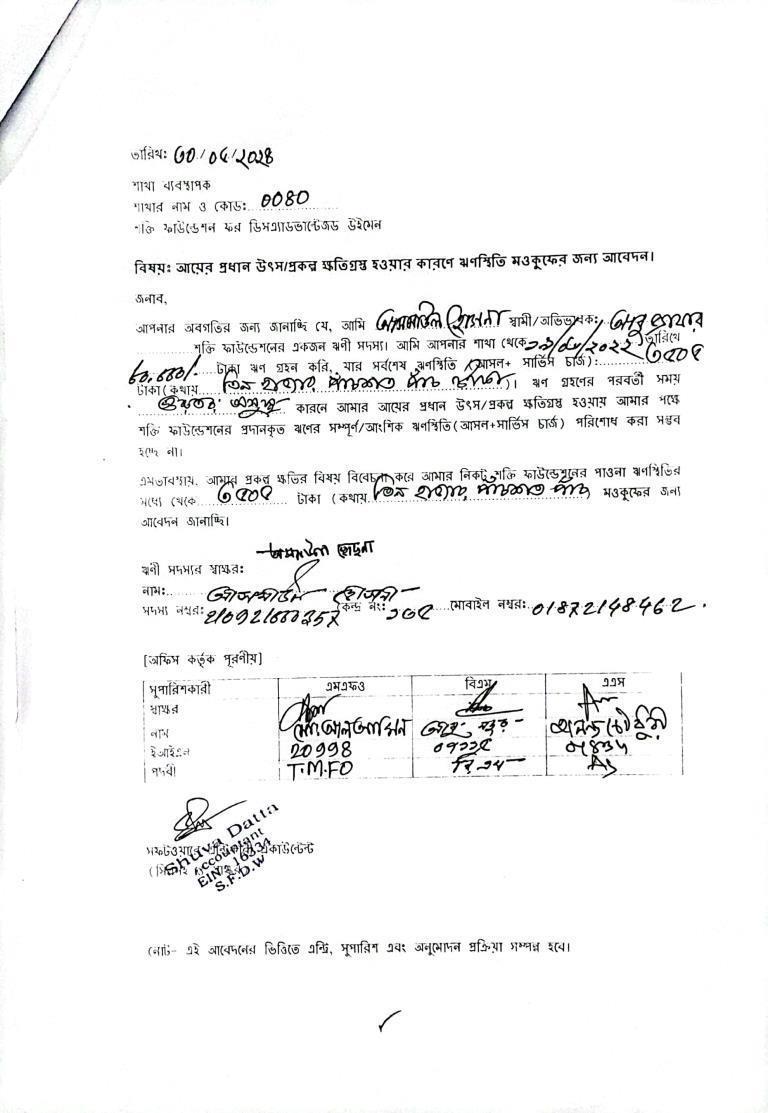 তারিখ: ৩০/০৫/২০২৪
শাখা ব্যবস্থাপক
শাখার নাম ও কোড: 0080
শক্তি ফাউন্ডেশন ফর ডিসএ্যাডভান্টেজড উইমেন
বিষয়: আয়ের প্রধান উৎস/প্রকল্প ক্ষতিগ্রস্থ হওয়ার কারণে ঋণস্থিতি মওকুফের জন্য আবেদন।
জনাব,
আপনার অবগতির জন্য জানাচ্ছি যে, আমি হোসনা স্বামী/অভিভাবক: আবু
শক্তি ফাউন্ডেশনের একজন ঋণী সদস্য। আমি আপনার শাখা থেকে তারিখে
টাকা ঋণ গ্রহন করি, যার সর্বশেষ ঋণস্থিতি (আসল+ সার্ভিস চার্জ): ৩৫০৫
টাকা (কথায় তিন হাজার পাঁচশত পাঁচ টাকা)। ঋণ গ্রহণের পরবর্তী সময়
গুরুতর অসুস্থ কারনে আমার আয়ের প্রধান উৎস/প্রকল্প ক্ষতিগ্রস্থ হওয়ায় আমার পক্ষে
শক্তি ফাউন্ডেশনের প্রদানকৃত ঋণের সম্পূর্ণ/আংশিক ঋণস্থিতি (আসল+সার্ভিস চার্জ) পরিশোধ করা সম্ভব
হচ্ছে না।
এমতাবস্থায়, আমার প্রকল্প ক্ষতির বিষয় বিবেচনা করে আমার নিকট শক্তি ফাউন্ডেশনের পাওনা ঋণস্থিতির
মধ্যে থেকে ৩৫০৫ টাকা (কথায় তিন হাজার পাঁচশত পাঁচ) মওকুফের জন্য
আবেদন জানাচ্ছি।
ঋণী সদস্যর স্বাক্ষর:
নাম:
সদস্য নম্বর: কেন্দ্র নং: মোবাইল নম্বর: 01872148462.
[অফিস কর্তৃক পূরণীয়]
সুপারিশকারী এমএফও বিএম এএস
স্বাক্ষর
নাম মোঃ আল আমিন চৌধুরী
ইআইএন 20998
পদবী T.M.FO বি এম AS
সফটওয়ারে এন্ট্রিকারী একাউন্টেন্ট
Shuva Datta
Accountant
EIN: 16334
S.F.D.W
নোট- এই আবেদনের ভিত্তিতে এন্ট্রি, সুপারিশ এবং অনুমোদন প্রক্রিয়া সম্পন্ন হবে।